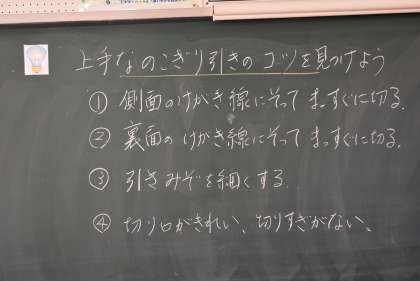 上手なのこぎり引きのコツを見つけよう
① 側面のけがき線にそって まっすぐに切る.
② 裏面の けがき線にそって まっすぐに切る.
③ 引きみぞを細くする.
④ 切り口がきれい、切りすぎがない、